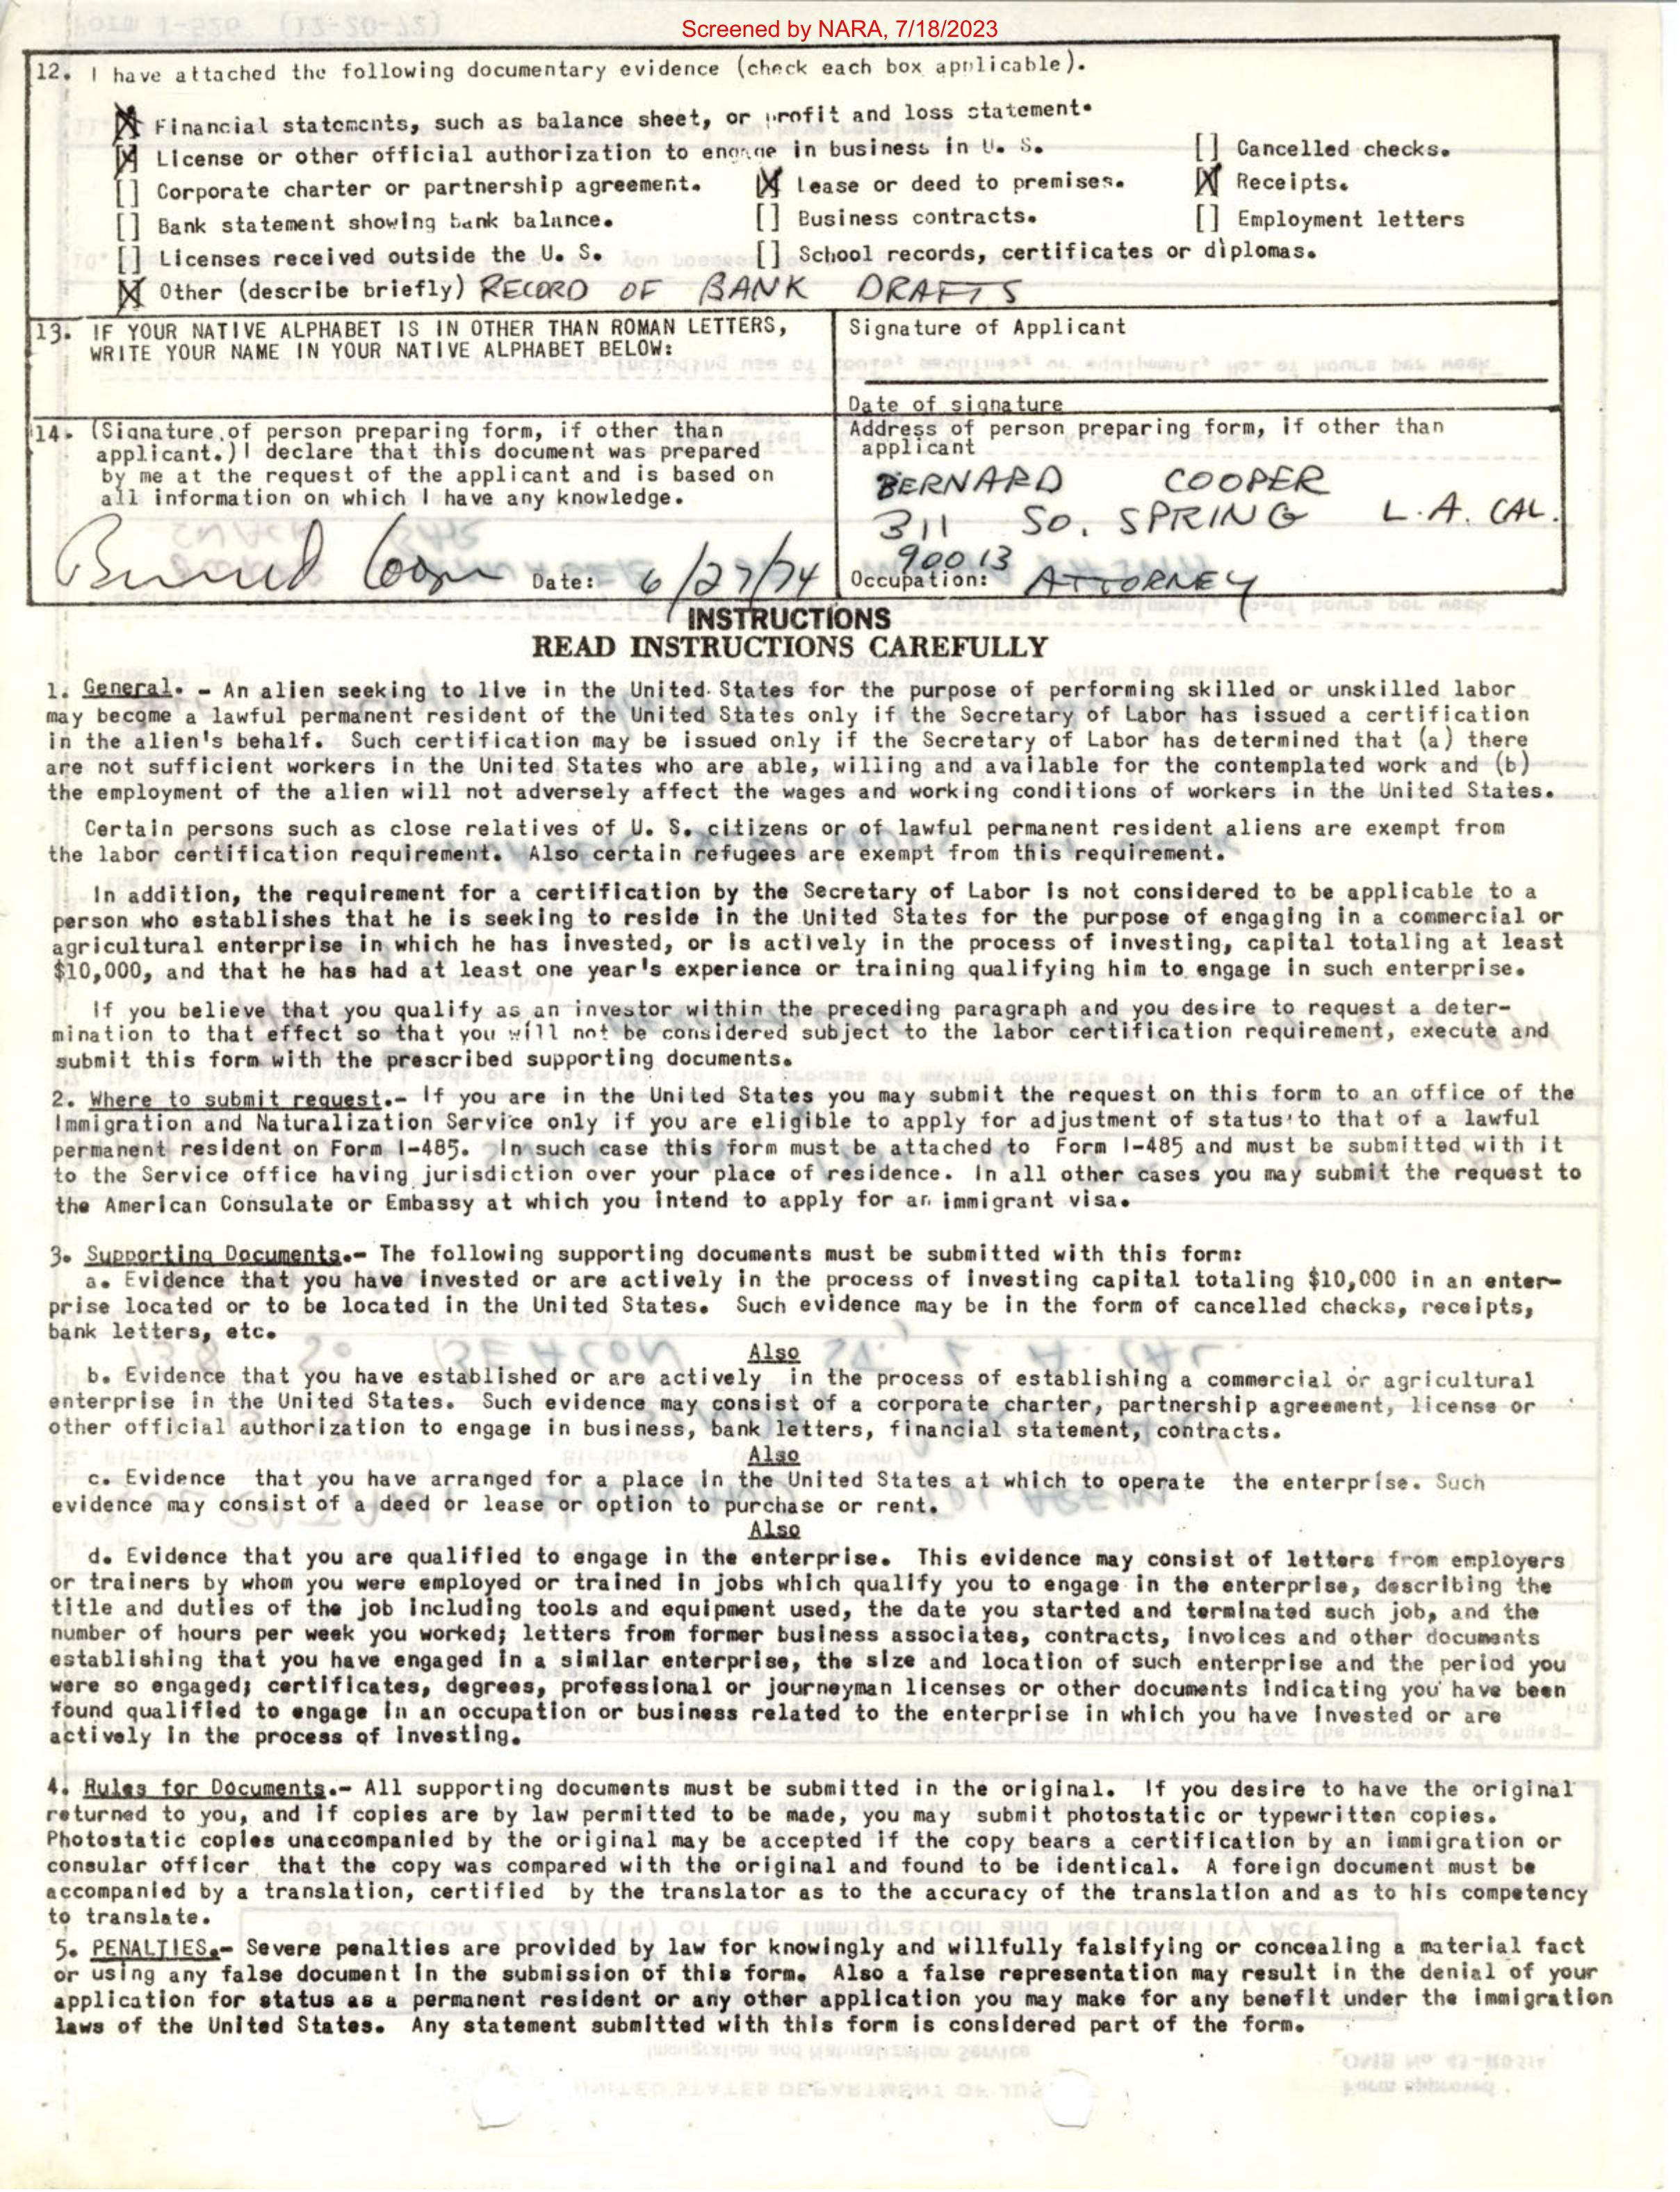 Screened by NARA, 7/18/2023
12. I have attached the following documentary evidence (check each box applicable).
[X] Financial statements, such as balance sheet, or profit and loss statement.
[X] License or other official authorization to engage in business in U. S. [] Cancelled checks.
[] Corporate charter or partnership agreement. [X] Lease or deed to premises. [X] Receipts.
[] Bank statement showing bank balance. [] Business contracts. [] Employment letters
[] Licenses received outside the U. S. [] School records, certificates or diplomas.
[X] Other (describe briefly) RECORD OF BANK DRAFTS
13. IF YOUR NATIVE ALPHABET IS IN OTHER THAN ROMAN LETTERS,
WRITE YOUR NAME IN YOUR NATIVE ALPHABET BELOW:
Signature of Applicant
Date of signature
14. (Signature of person preparing form, if other than
applicant.) I declare that this document was prepared
by me at the request of the applicant and is based on
all information on which I have any knowledge.
Bernard Cooper Date: 6/27/74
Address of person preparing form, if other than
applicant
BERNARD COOPER
311 SO. SPRING L.A. CAL.
90013
Occupation: ATTORNEY
INSTRUCTIONS
READ INSTRUCTIONS CAREFULLY
1. General. - An alien seeking to live in the United States for the purpose of performing skilled or unskilled labor
may become a lawful permanent resident of the United States only if the Secretary of Labor has issued a certification
in the alien's behalf. Such certification may be issued only if the Secretary of Labor has determined that (a) there
are not sufficient workers in the United States who are able, willing and available for the contemplated work and (b)
the employment of the alien will not adversely affect the wages and working conditions of workers in the United States.
Certain persons such as close relatives of U. S. citizens or of lawful permanent resident aliens are exempt from
the labor certification requirement. Also certain refugees are exempt from this requirement.
In addition, the requirement for a certification by the Secretary of Labor is not considered to be applicable to a
person who establishes that he is seeking to reside in the United States for the purpose of engaging in a commercial or
agricultural enterprise in which he has invested, or is actively in the process of investing, capital totaling at least
$10,000, and that he has had at least one year's experience or training qualifying him to engage in such enterprise.
If you believe that you qualify as an investor within the preceding paragraph and you desire to request a deter-
mination to that effect so that you will not be considered subject to the labor certification requirement, execute and
submit this form with the prescribed supporting documents.
2. Where to submit request.- If you are in the United States you may submit the request on this form to an office of the
Immigration and Naturalization Service only if you are eligible to apply for adjustment of status to that of a lawful
permanent resident on Form I-485. In such case this form must be attached to Form I-485 and must be submitted with it
to the Service office having jurisdiction over your place of residence. In all other cases you may submit the request to
the American Consulate or Embassy at which you intend to apply for an immigrant visa.
3. Supporting Documents.- The following supporting documents must be submitted with this form:
a. Evidence that you have invested or are actively in the process of investing capital totaling $10,000 in an enter-
prise located or to be located in the United States. Such evidence may be in the form of cancelled checks, receipts,
bank letters, etc.
Also
b. Evidence that you have established or are actively in the process of establishing a commercial or agricultural
enterprise in the United States. Such evidence may consist of a corporate charter, partnership agreement, license or
other official authorization to engage in business, bank letters, financial statement, contracts.
Also
c. Evidence that you have arranged for a place in the United States at which to operate the enterprise. Such
evidence may consist of a deed or lease or option to purchase or rent.
Also
d. Evidence that you are qualified to engage in the enterprise. This evidence may consist of letters from employers
or trainers by whom you were employed or trained in jobs which qualify you to engage in the enterprise, describing the
title and duties of the job including tools and equipment used, the date you started and terminated such job, and the
number of hours per week you worked; letters from former business associates, contracts, invoices and other documents
establishing that you have engaged in a similar enterprise, the size and location of such enterprise and the period you
were so engaged; certificates, degrees, professional or journeyman licenses or other documents indicating you have been
found qualified to engage in an occupation or business related to the enterprise in which you have invested or are
actively in the process of investing.
4. Rules for Documents.- All supporting documents must be submitted in the original. If you desire to have the original
returned to you, and if copies are by law permitted to be made, you may submit photostatic or typewritten copies.
Photostatic copies unaccompanied by the original may be accepted if the copy bears a certification by an immigration or
consular officer that the copy was compared with the original and found to be identical. A foreign document must be
accompanied by a translation, certified by the translator as to the accuracy of the translation and as to his competency
to translate.
5. PENALTIES.- Severe penalties are provided by law for knowingly and willfully falsifying or concealing a material fact
or using any false document in the submission of this form. Also a false representation may result in the denial of your
application for status as a permanent resident or any other application you may make for any benefit under the immigration
laws of the United States. Any statement submitted with this form is considered part of the form.